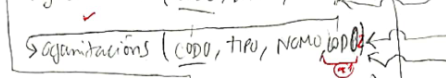 organitacións (CODO, TIPO, NOMO, CODO)